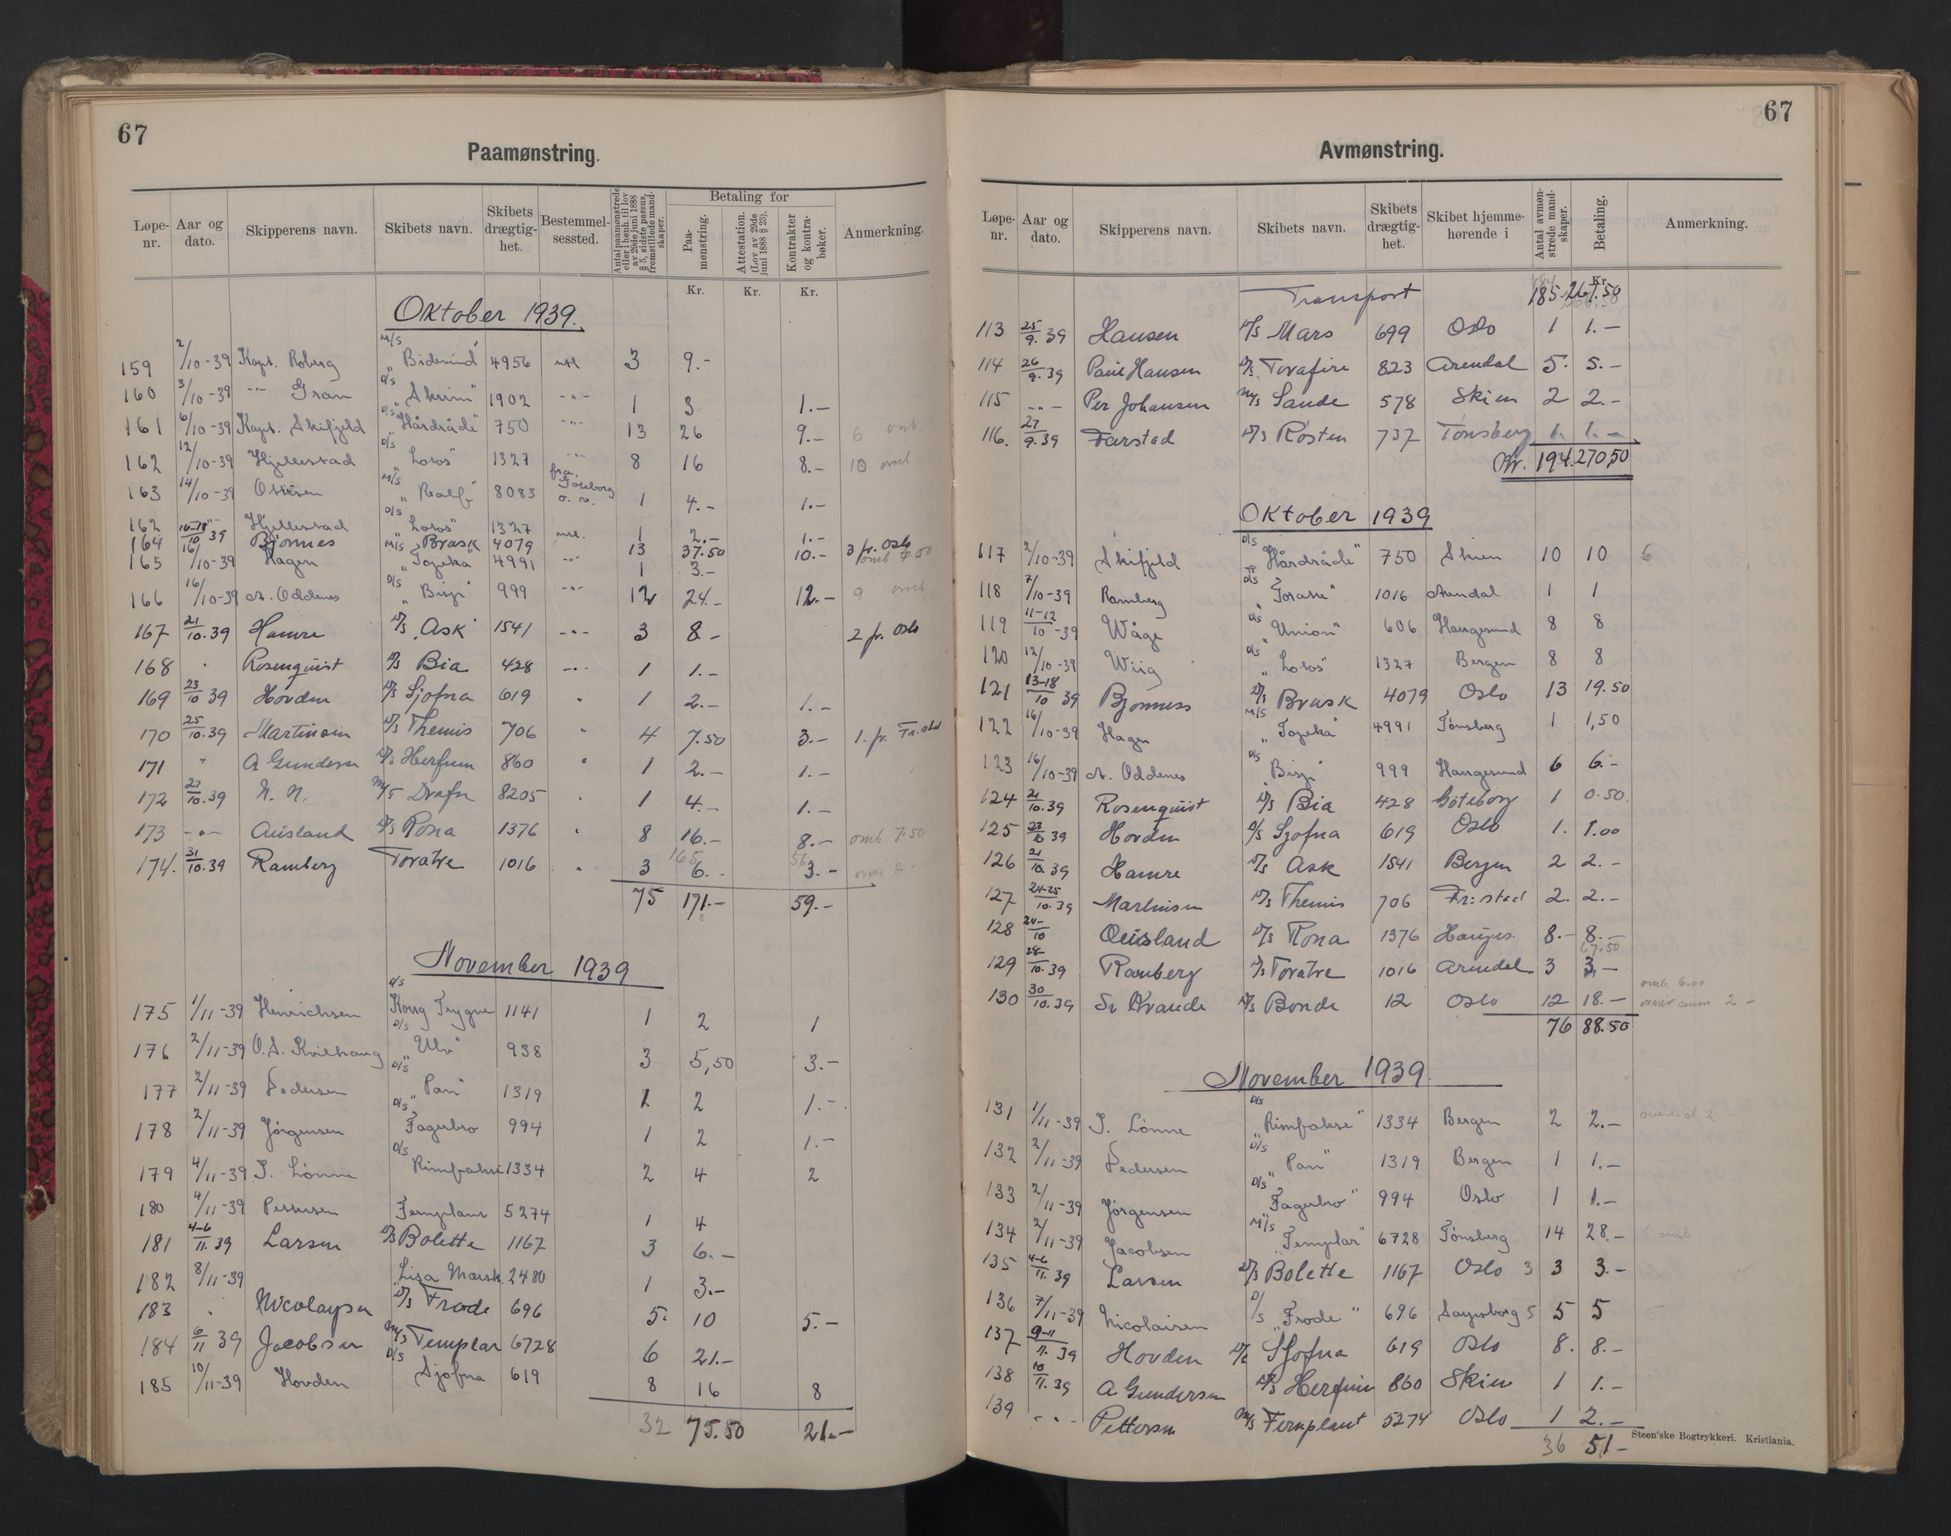 67
Paamønstring.
Løpe-nr. Aar og dato. Skipperens navn. Skibets navn. Skibets drægtig-het. Bestemmel-sessted. Antal paamønstrede eller i henh. til lov av 29de juni 1888 § 5, sidste passus, fremstillede mand-skaper. Betaling for Paa-mønstring. Attestation. (Lov. av 29de juni 1888 § 23). Kontrakter og kontra-bøker. Anmerkning.
Kr. Kr. Kr.
Oktober 1939.
159 2/10-39 Kapt. Roberg M/S "Bidevind" 4956 utl 3 9.-
160 3/10-39 -"- Gran D/S "Skrim" 1902 -"- 1 3 1.-
161 6/10-39 Kapt. Skifjeld D/S "Hårdråde" 750 -"- 13 26 9.- 6 omb
162 12/10-39 Hjellestad D/S "Lotos" 1327 -"- 8 16 8.- 10 omb
163 14/10-39 Olsen M/S "Ralf" 8083 fra Göteborg o. v. 1 4.- 1.-
162 16-18/10 39 Hjellestad D/S "Lotos" 1327 utl. 1 2.- 1.-
164 Bjønnes M/S Brask 4079 13 37.50 10.- 3 fr. Oslo
165 16/10-39 Hagen "Topeka" 4991 -"- 1 3.- omb 6.00
166 16/10-39 A. Oddenes D/S "Bisp" 999 -"- 12 24.- 12.- 9 omb
167 21/10.39 Hamre D/S "Ask" 1541 -"- 3 8.- 2 fr. Oslo
168 " Rosenquist D/S Bia 428 -"- 1 1.-
169 23/10 39 Hovden D/S Sjofna 619 " 1 2.- 1.-
170 25/10.39 Martinsen D/S Themis 706 " 4 7.50 3.- 1. fr. Fr.stad
171 " A Gundersen D/S Herfinn 860 " 1 2.- 1.-
172 27/10.39 N. N. M/S Drafn 8205 " 1 4.- 1.-
173 -"- Quisland D/S Rona 1376 " 8 16.- 8.- omb 7.50
174. 31/10.39 Ramberg Toratre 1016 " 3 6.- 3.-
165 56
75 171.- 59.-
November 1939
175 1/11-39 Henrichsen D/S Kong Trygve 1141 1 2 1
176 2/11-39 O. S. Kvilhaug D/S "Ulv" 938 3 5,50 3.-
177 2/11-39 Pedersen D/S "Pan" 1319 1 2 1.-
178 2/11-39 Jørgensen D/S Fagerbro 994 1 2 1.-
179 4/11-39 I. Lønne D/S Rimfakse 1334 2 4 2
180 4/11-39 Pettersen Fernplant 5274 1 4
181 4-6/11.39 Larsen D/S Bolette 1167 3 6.-
182 8/11-39 Lisa Marsk. 2480 1 3.-
183 " Nicolaysen D/S Frode 696 5. 10 5.-
184 6/11 39 Jacobsen M/S Templar 6728 6 21.-
185 10/11-39 Hovden D/S Sjofna 619 8 16 8
32 75.50 21.-
67
Avmønstring.
Løpe-nr. Aar og dato. Skipperens navn. Skibets navn. Skibets drægtig-het. Skibet hjemme-hørende i Antal avmøn-strede mand-skaper. Betaling. Anmerkning.
Kr.
Transport 185. 267.50
113 25/9.39 Hansen D/S Mars 699 Oslo 1 1.-
114 26/9.39 Paul Hansen D/S Torafire 823 Arendal 5. 5.-
115 -"- Per Johansen M/S Sande 578 Skien 2 2.-
116. 27/9.39 Farstad D/S Rosten 737 Tønsberg 1. 1.-
Kr. 194. 270,50
Oktober 1939
117 2/10-39 Skifjeld D/S "Hårdråde" 750 Skien 10 10 6
118 7/10-39 Ramberg D/S "Toratre" 1016 Arendal 1 1
119 11-12/10-39 Wåge D/S "Union" 606 Haugesund 8 8
120 12/10-39 Wiig D/S "Lotos" 1327 Bergen 8 8
121 13-18/10 39 Bjønness D/S Brask 4079 Oslo 13 19.50
122 16/10-39 Hagen M/S "Topeka" 4991 Tønsberg 1 1,50
123 16/10-39 A. Oddenes D/S "Bisp" 999 Haugesund 6 6.-
124 21/10.39 Rosenquist D/S Bia 428 Göteborg 1 0.50
125 23/10 39 Hovden D/S Sjofna 619 Oslo 1. 1.00
126 21/10.39 Hamre D/S Ask 1541 Bergen 2 2.-
127 24-25/10.39 Martinsen D/S Themis 706 Fr:stad 2. 2.-
128 24-/10 Quisland D/S Rona 1376 Hauges. 8.- 8.-
67,50
129 28-/10.39 Ramberg D/S Toratre 1016 Arendal 3 3.-
130 30/10.39 D/S Bonde 12 Oslo 12 18.- omb 6.00
76 88.50
November 1939
131 1/11-39 I. Lønne D/S "Rimfakse" 1334 Bergen 2 2.- overtid 2 -
132 2/11-39 Pedersen D/S "Pan" 1319 Bergen 1 1.-
133 2/11-39 Jørgensen D/S "Fagerbro" 994 Oslo 1 1.-
134 2/11-39 Jacobsen M/S "Templar" 6728 Tønsberg 14 28.-
135 4-6/11.39 Larsen D/S Bolette 1167 Oslo 3 3 3.-
136 7/11-39 Nicolaisen D/S "Frode" 696 Sarpsborg 5 5 5
137 9-11/11.39 Hovden D/S Sjofna 619 Oslo 8. 8.-
138 10/11.39 A Gundersen D/S Herfinn 860 Skien 1 1.-
139 -"- Pettersen M/S Fernplant 5274 Oslo 1 2.-
36 51-
Steen'ske Bogtrykkeri. Kristiania.